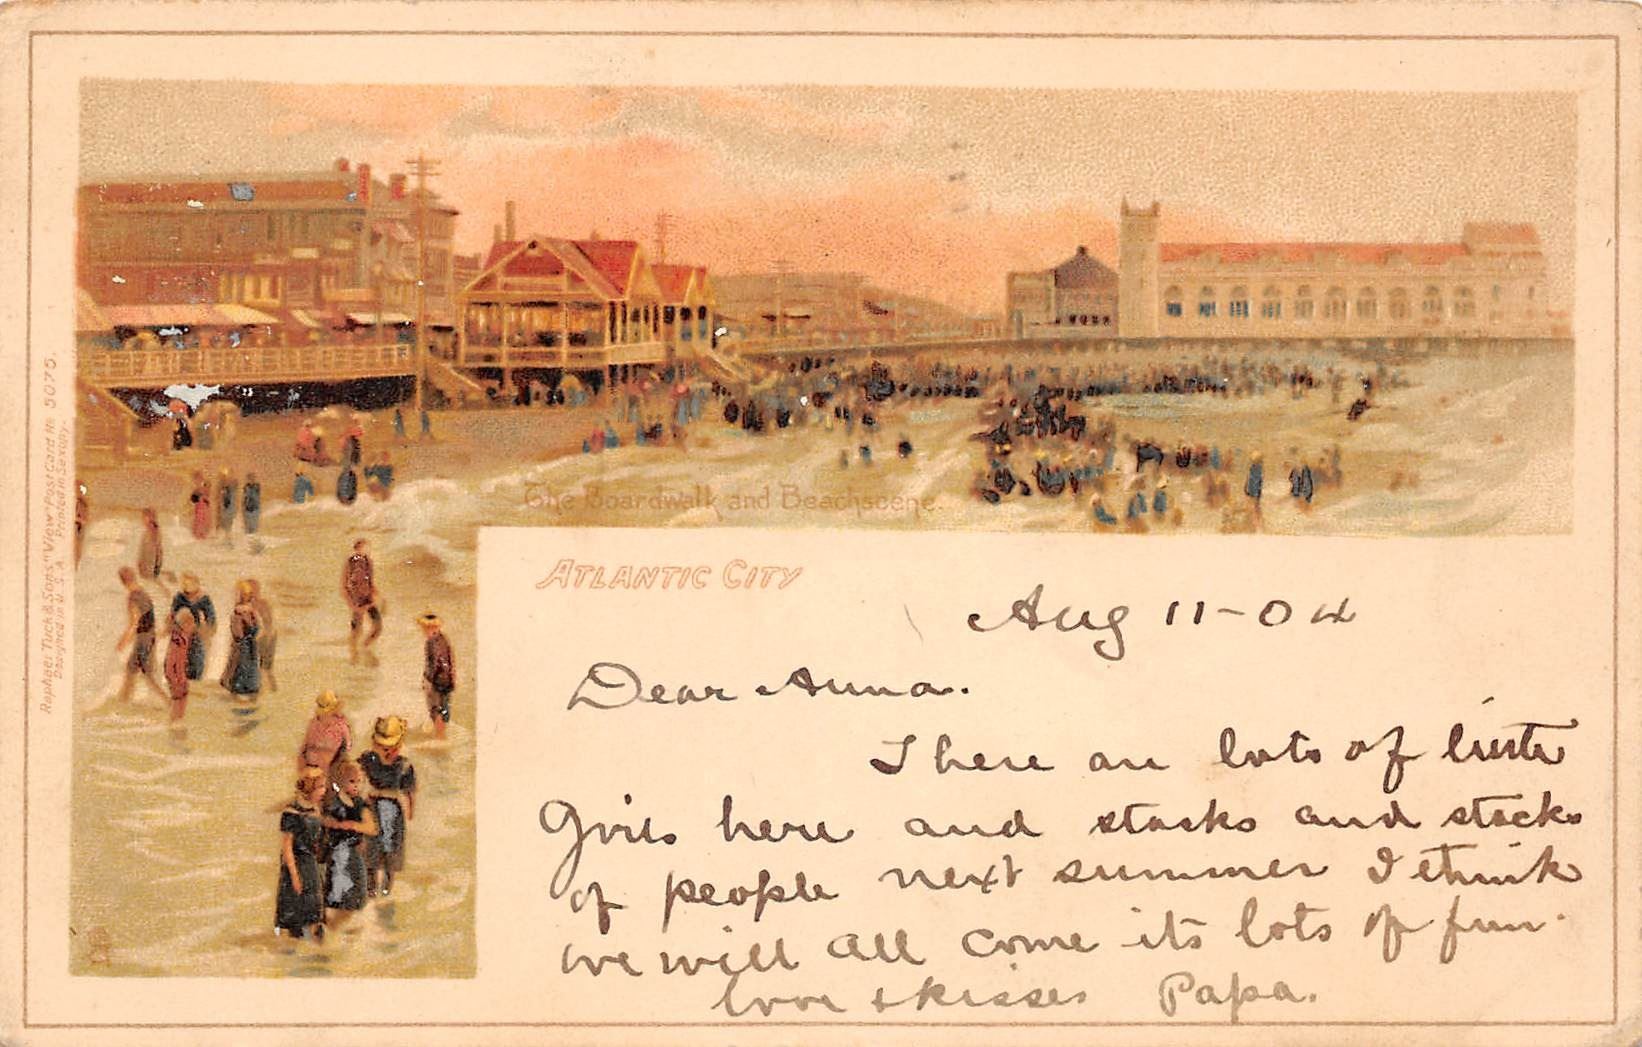 Raphael Tuck & Sons' "View" Post Card No 5075.
Designed in U.S.A. Printed in Saxony.
The Boardwalk and Beachscene.
ATLANTIC CITY
Aug 11-04
Dear Anna.
There are lots of little
Girls here and stacks and stacks
of people next summer I think
we will all come its lots of fun.
love & kisses Papa.